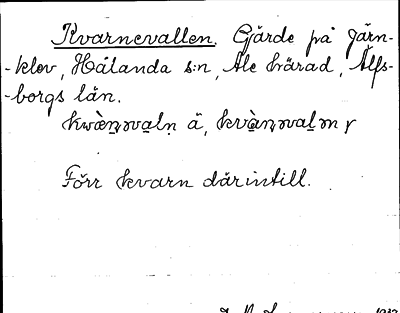 Kvarnevallen. Gärde på Järn-
-klev, Hålanda s:n, Ale härad, Älfs-
-borgs län.
kwàṉəva̱lṇ ä, kvàṉəva̱lən r
Förr kvarn därintill.